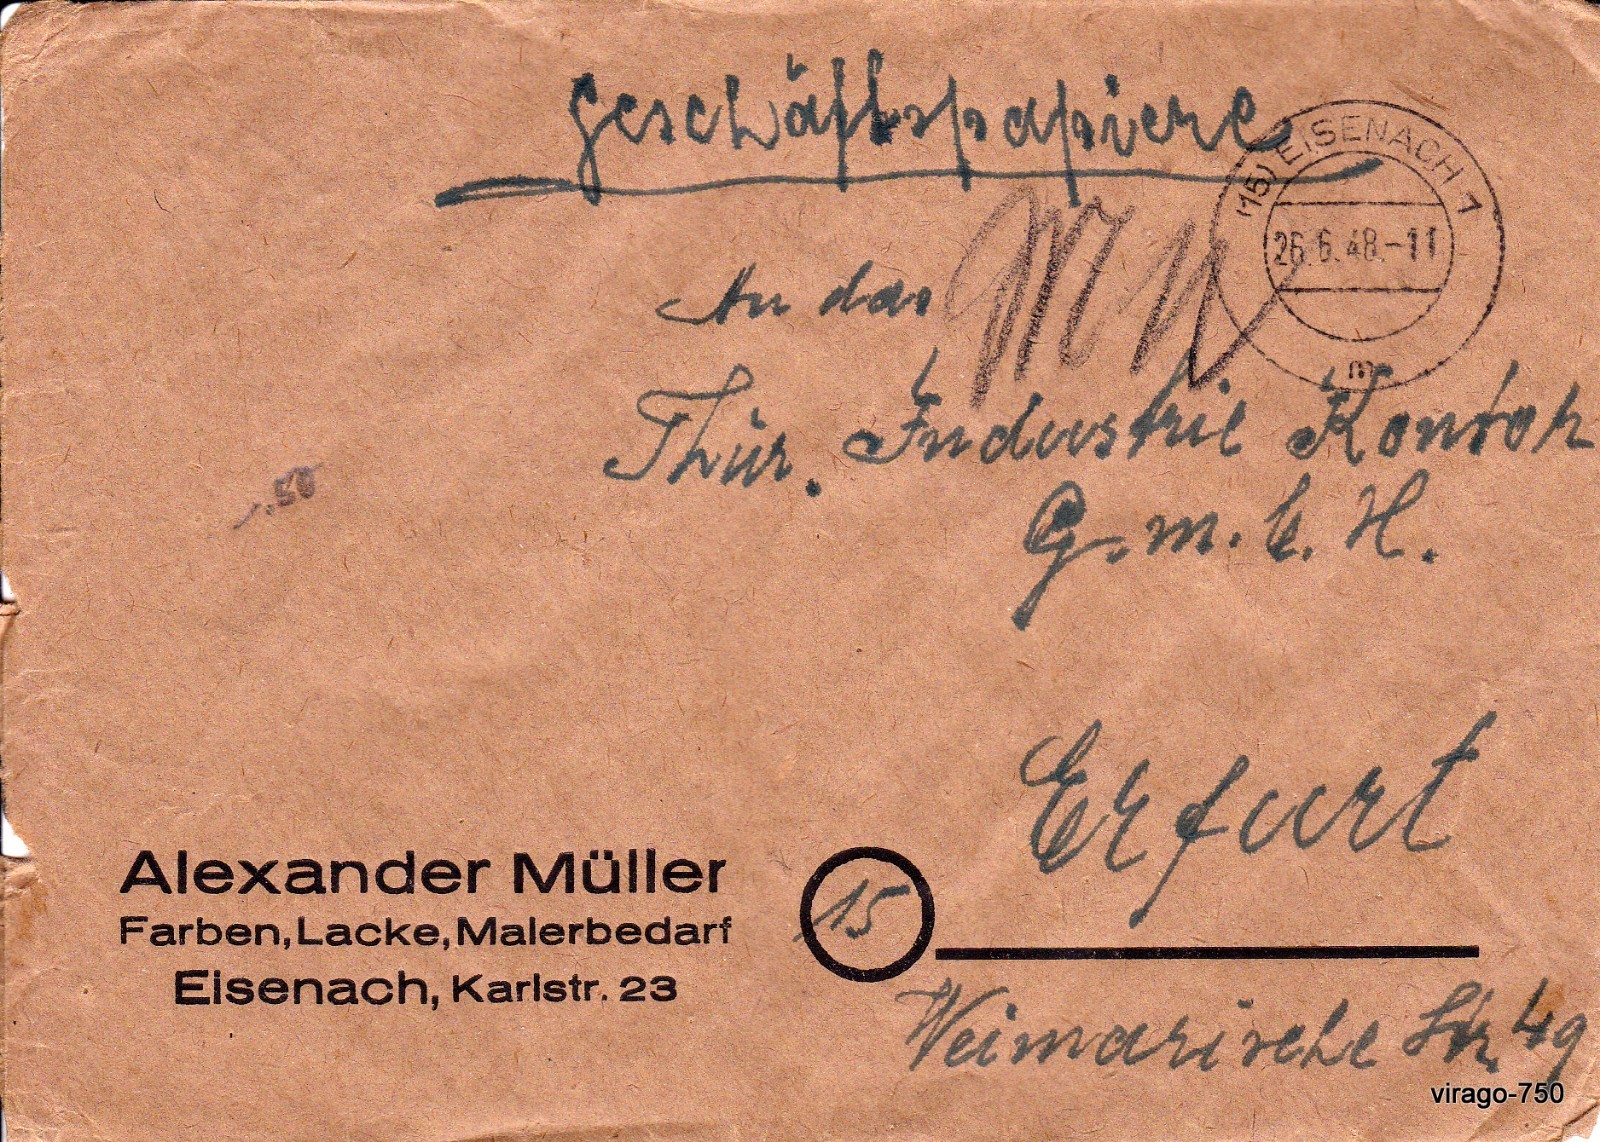 Geschäftspapiere
(15) EISENACH 1
26.6.48.-11
m
An das
Thür. Industrie Kontor
G.m.b.H.
Erfurt
15
Weimarische Str 49
Alexander Müller
Farben, Lacke, Malerbedarf
Eisenach, Karlstr. 23
virago-750